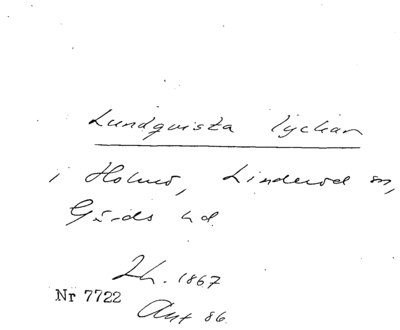 Lundqvista lyckan
i Holmö, Linderöd sn,
Gärds hd.
Lh. 1867
Nr 7722
Ant 86.